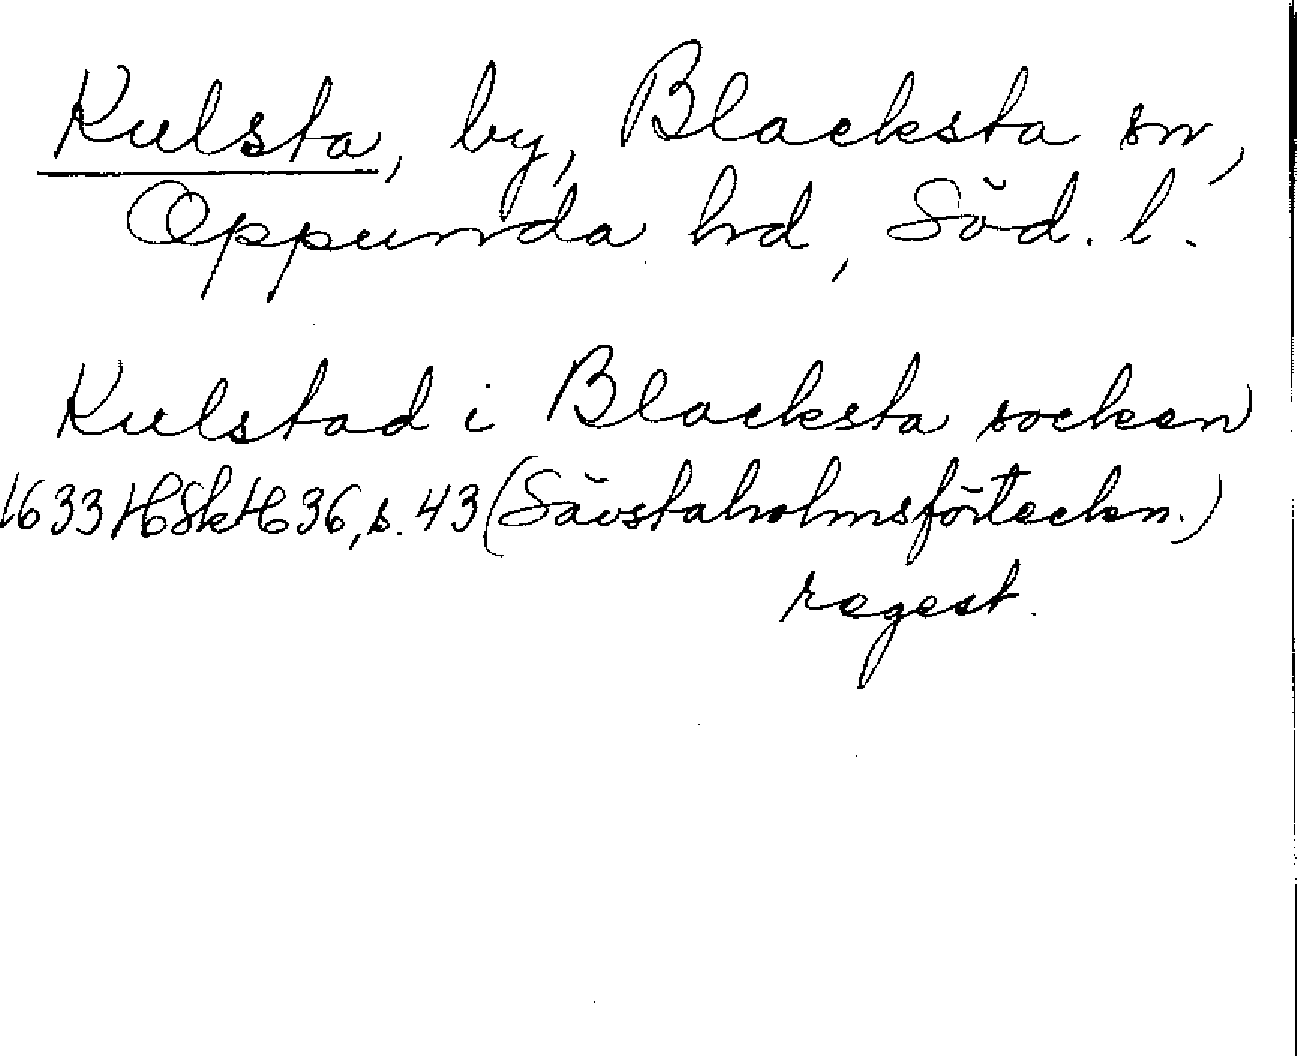 Kulsta, by, Blacksta sn,
Oppunda hd, Söd. l.
Kulstad i Blacksta socken
1633 HSkH 36, s. 43 (Sävstaholmsförteckn.)
regest.